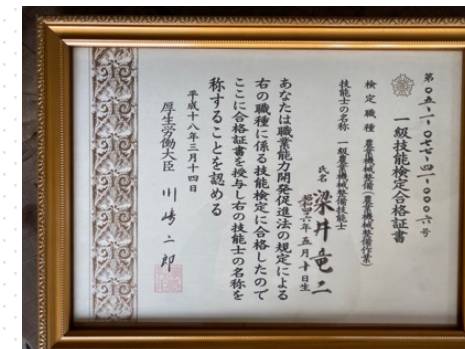 第〇五、一、〇七七、四一、〇〇〇六号
一級技能検定合格証書
検定職種 農業機械整備(農業機械整備作業)
技能士の名称 一級農業機械整備技能士
氏名 梁井竜二
昭和 六年五月十日生
あなたは職業能力開発促進法の規定による
右の職種に係る技能検定に合格したので
ここに合格証書を授与し右の技能士の名称を
称することを認める
平成十八年三月十四日
厚生労働大臣 川崎二郎